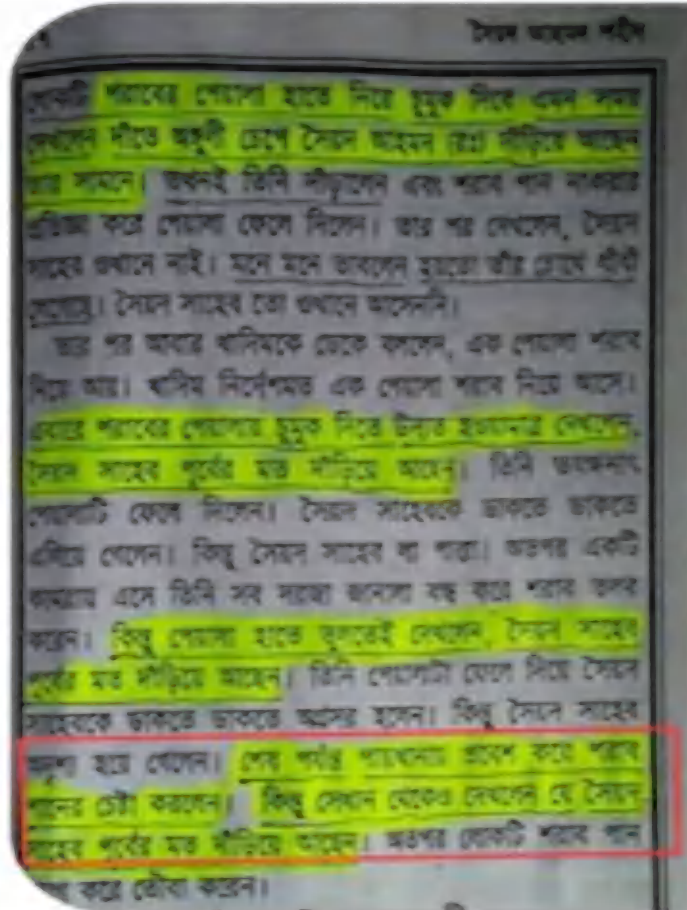 সৈয়দ আহমদ শহীদ
লোকটি শরাবের পেয়ালা হাতে নিয়ে চুমুক দিবে এমন সময়
দেখলেন দাঁতে অঙ্গুলী চেপে সৈয়দ আহমদ (রহঃ) দাঁড়িয়ে আছেন
তার সামনে। তখনই তিনি দাঁড়ালেন এবং শরাব পান নাকরার
প্রতিজ্ঞা করে পেয়ালা ফেলে দিলেন। তার পর দেখলেন, সৈয়দ
সাহেব ওখানে নাই। মনে মনে ভাবলেন হয়তো তাঁর চোখে ধাঁধাঁ
লেগেছে। সৈয়দ সাহেব তো ওখানে আসেননি।
তার পর আবার খাদিমকে ডেকে বললেন, এক পেয়ালা শরাব
নিয়ে আয়। খাদিম নির্দেশমত এক পেয়ালা শরাব নিয়ে আসে।
এবারে শরাবের পেয়ালায় চুমুক দিতে উদ্যত হওয়ামাত্র দেখলেন,
সৈয়দ সাহেব পূর্বের মত দাঁড়িয়ে আছেন। তিনি তৎক্ষণাৎ
পেয়ালাটি ফেলে দিলেন। সৈয়দ সাহেবকে ডাকতে ডাকতে
এগিয়ে গেলেন। কিন্তু সৈয়দ সাহেব লা পাত্তা। অতপর একটি
কামরায় এসে তিনি সব দরজা জানলা বন্ধ করে শরাব তলব
করেন। কিন্তু পেয়ালা হাতে তুলতেই দেখলেন, সৈয়দ সাহেব
পূর্বের মত দাঁড়িয়ে আছেন। তিনি পেয়ালাটা ফেলে দিয়ে সৈয়দ
সাহেবকে ডাকতে ডাকতে অগ্রসর হলেন। কিন্তু সৈয়দ সাহেব
অদৃশ্য হয়ে গেলেন। শেষ পর্যন্ত পায়খানায় প্রবেশ করে শরাব
পানের চেষ্টা করলেন। কিন্তু সেখান থেকেও দেখলেন যে সৈয়দ
সাহেব পূর্বের মত দাঁড়িয়ে আছেন। অতপর লোকটি শরাব পান
করে তৌবা করেন।